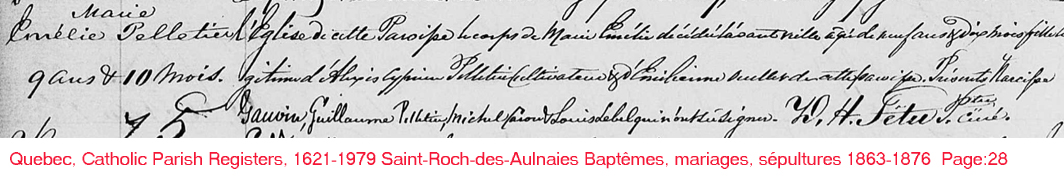 Marie
Emélie Pelletier l'Eglise de cette Paroisse le corps de Marie Emélie décédée l'avant veille agée de neuf ans & dix mois fille
9 ans & 10 mois. gitime d'Alexis Cyprien Pelletier Cultivateur & d'Emilienne de cette paroisse. Présents Narcisse
Gauvin, Guillaume Pelletier, Michel Caron & Louis Lebel qui n'ont su signer. W. H. Têtu Ptre Curé.
Quebec, Catholic Parish Registers, 1621-1979 Saint-Roch-des-Aulnaies Baptêmes, mariages, sépultures 1863-1876 Page:28